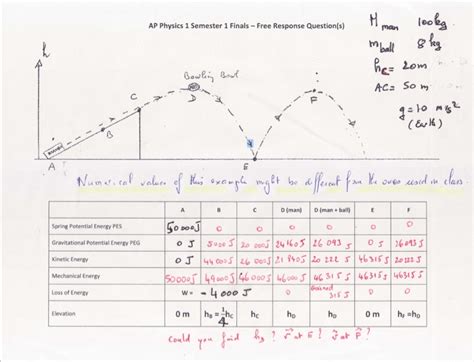 AP Physics 1 Semester 1 Finals – Free Response Question(s)
M man 100kg
m ball 8 kg
hc = 20m
AC = 50 m
g = 10 m/s²
(Earth)
h
Bowling Bowl
A B C D E F
Numerical values of this example might be different from the ones used in class.
A B C D (man) D (man + ball) E F
Spring Potential Energy PES 50000J 0 0 0 0 0 0
Gravitational Potential Energy PEG 0 J 5000 J 20 000 J 24160J 26 093 J 0 J 26093 J
Kinetic Energy 0 J 44000 J 26 000 J 20 222 J 46315 J 20222 J
Mechanical Energy 50000J 49000 J 46 000J 46 000 J 46 315 J 46315J 46315 J
Loss of Energy W = - 4000 J 0 Gained 315 J 0 0
Elevation 0 m hB = 1/4 hC hC hD hD 0 m hF = hD
Could you find h3 ? v at E ? v at F ?